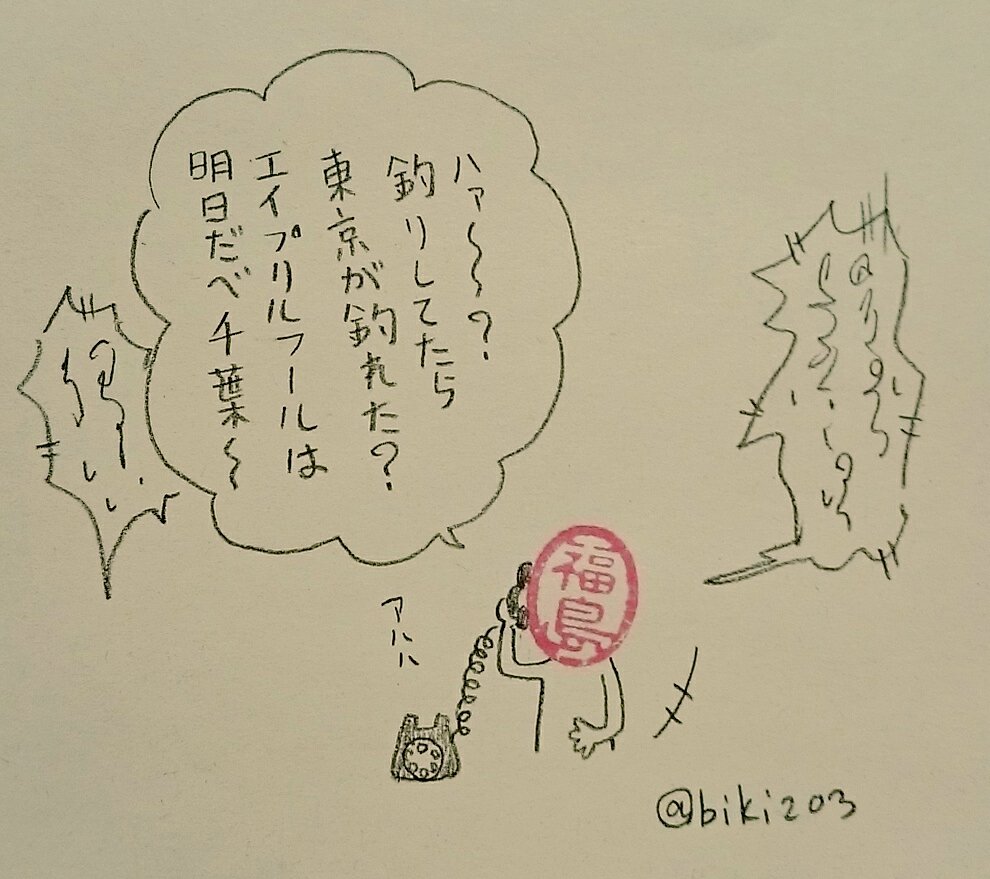 ハァ〜〜?
釣りしてたら
東京が釣れた?
エイプリルフールは
明日だべ千葉〜
アハハ
福島
@biki203